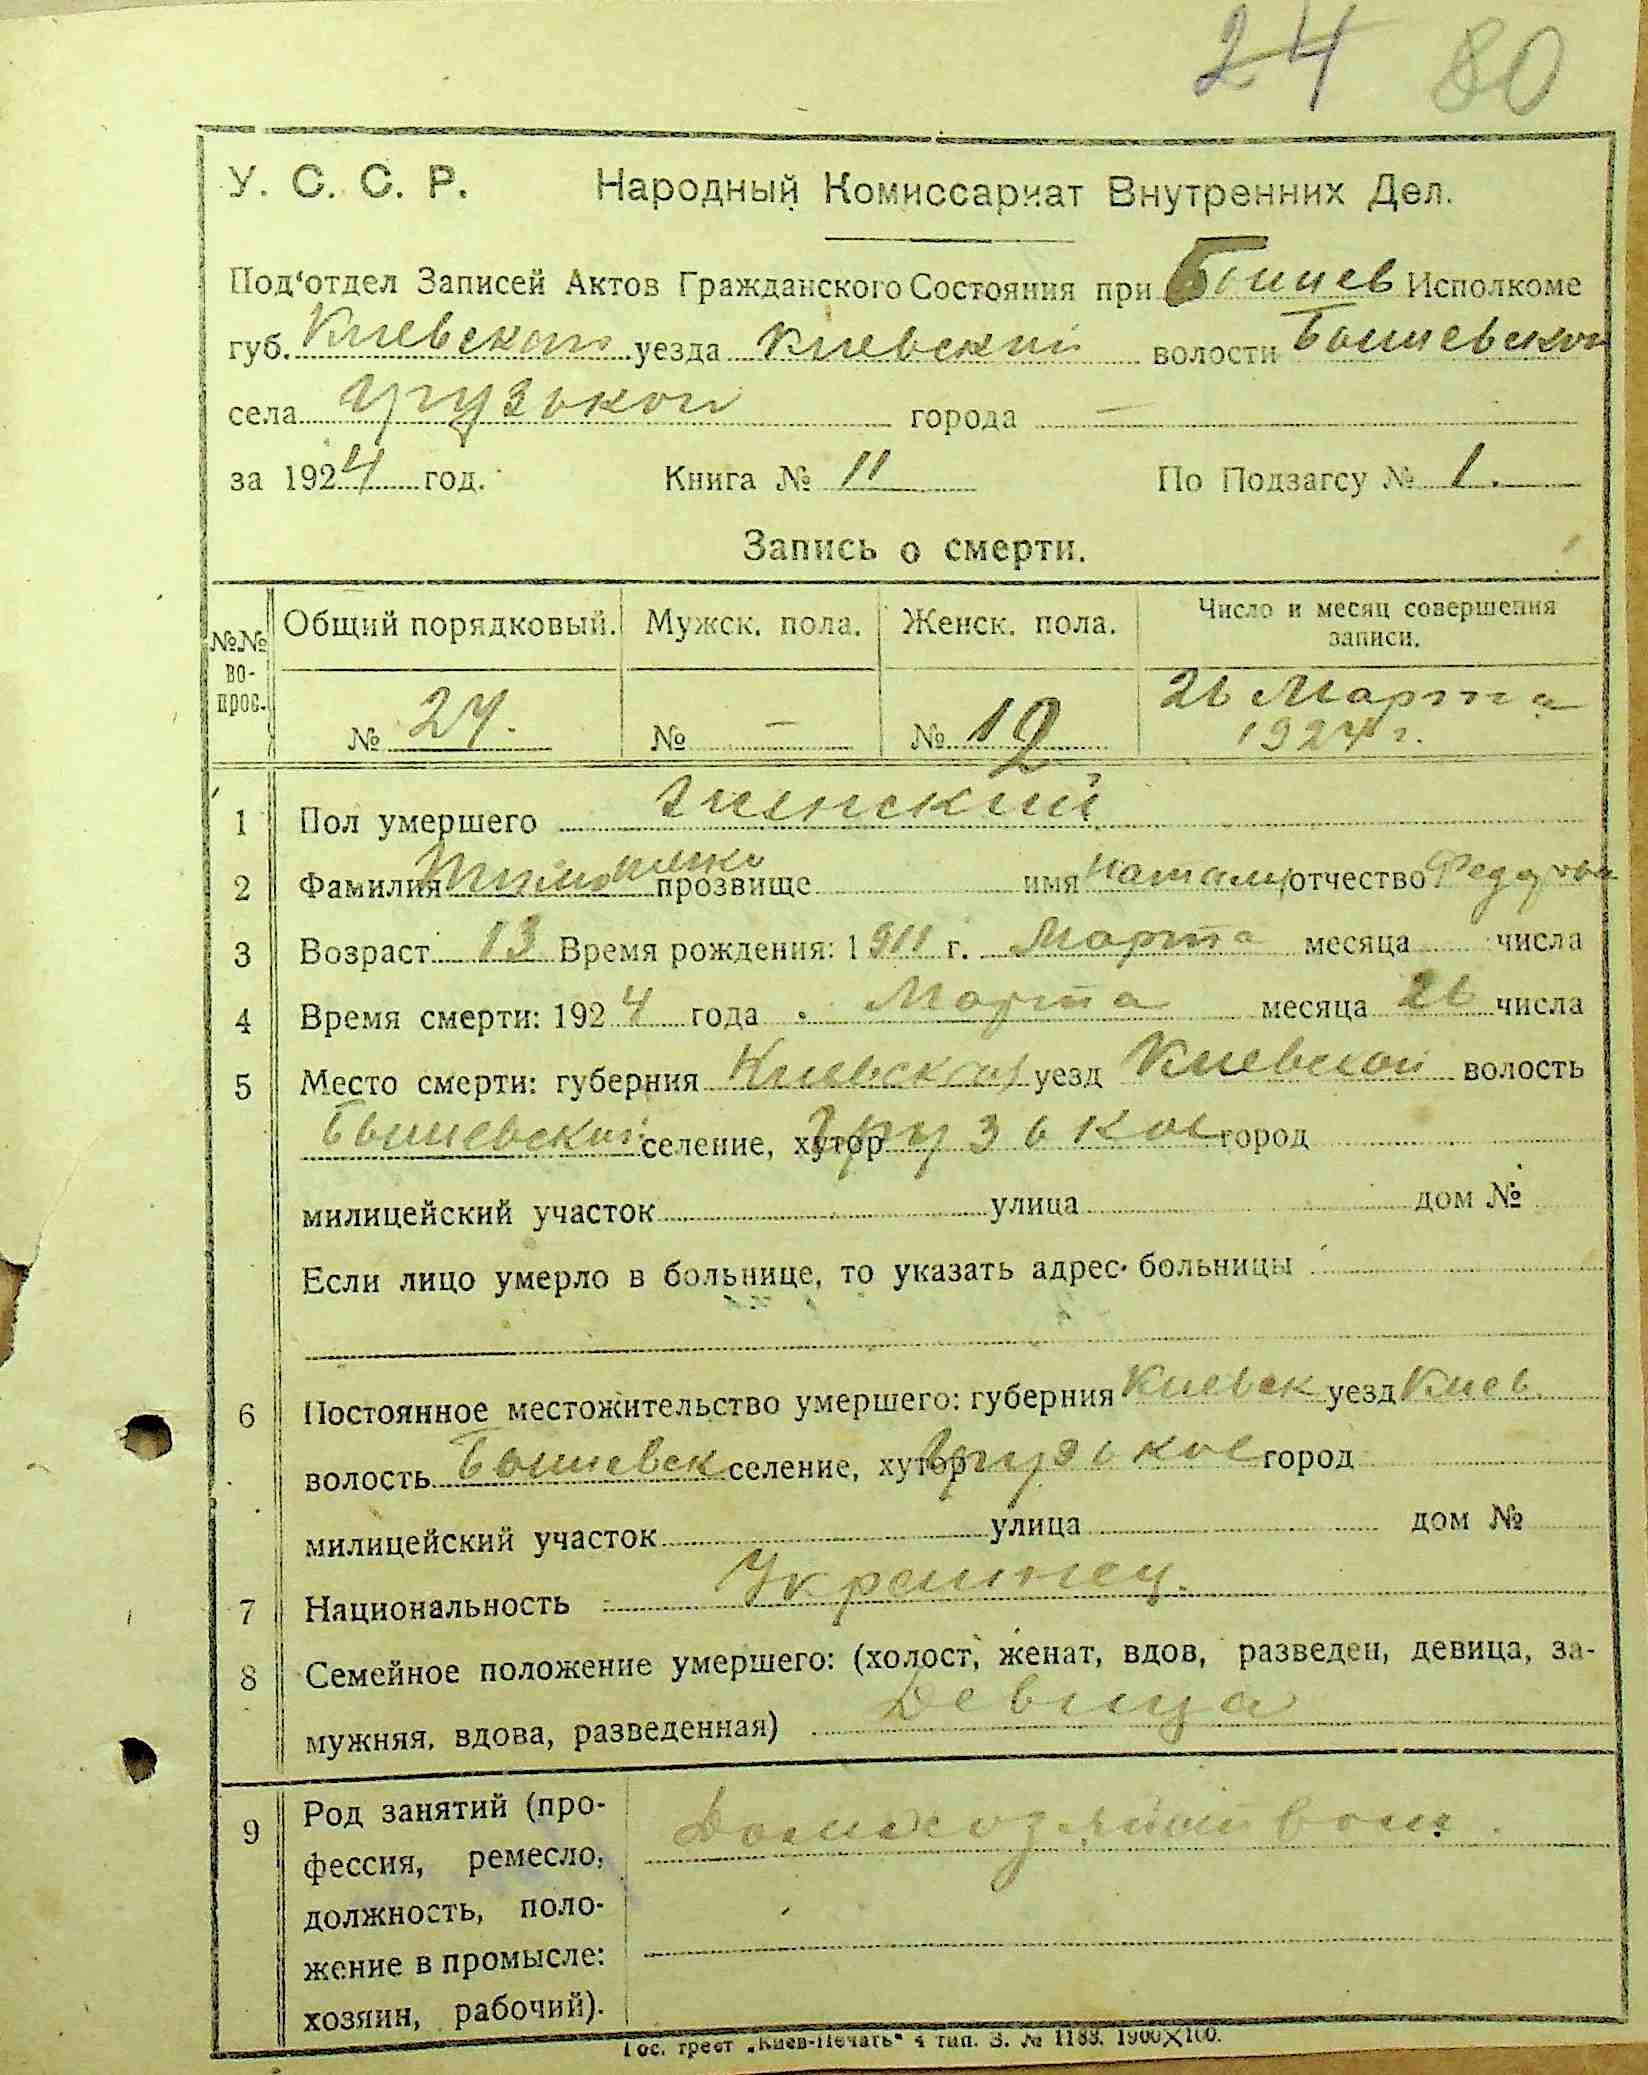 24 80
У. С. С. Р. Народный Комиссариат Внутренних Дел.
Под‘отдел Записей Актов Гражданского Состояния при Бышев Исполкоме
губ. Киевской уезда Киевский волости Бышевской
села Грузькой города —
за 1924 год. Книга № 11 По Подзагсу № 1.
Запись о смерти.
№№ во-прос. Общий порядковый. Мужск. пола. Женск. пола. Число и месяц совершения записи.
№ 24. № — № 12 26 Марта 1924 г.
1 Пол умершего женский
2 Фамилия прозвище имя Наталия отчество Федоровна
3 Возраст 13 Время рождения: 1911 г. Марта месяца числа
4 Время смерти: 1924 года Марта месяца 26 числа
5 Место смерти: губерния Киевская уезд Киевской волость
Бышевской селение, хутор Грузькое город
милицейский участок улица дом №
Если лицо умерло в больнице, то указать адрес больницы
6 Постоянное местожительство умершего: губерния Киевск уезд Киев
волость Бышевск селение, хутор Грузькое город
милицейский участок улица дом №
7 Национальность Украинец.
8 Семейное положение умершего: (холост, женат, вдов, разведен, девица, за-
мужняя, вдова, разведенная) Девица
9 Род занятий (про-
фессия, ремесло,
должность, поло-
жение в промысле:
хозяин, рабочий).
Гос. трест „Киев-Печать“ 4 тип. З. № 1188. 1900×100.